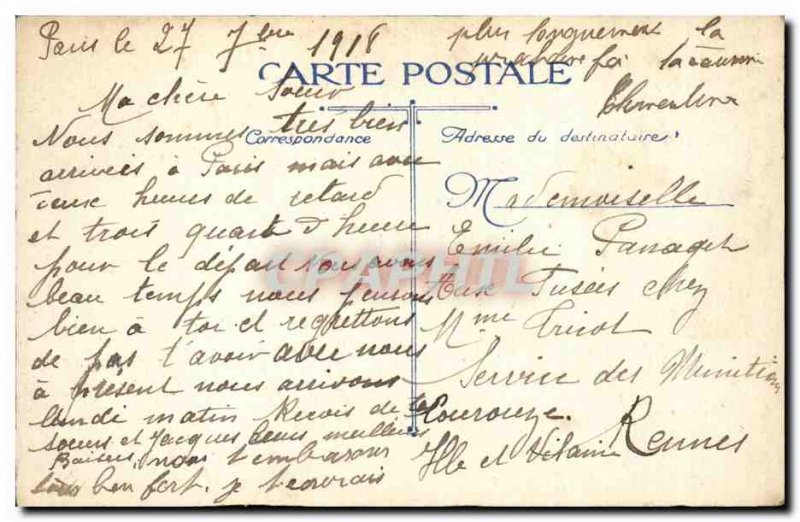 Paris le 27 7bre 1918
CARTE POSTALE
Correspondance
Ma chère Soeur
Nous sommes très bien
arrivées à Paris mais avec
deux heures de retard
et trois quart d'heure
pour le départ nous avons
beau temps nous pensons
bien à toi et regrettons
de pas t'avoir avec nous
à présent nous arrivons
lundi matin Reçois de tes
soeurs et Jacques leurs meilleurs
Baisers nous t'embrassons
tous ben fort. je t'ecrirais
plus longuement la
prochaine foi ta cousine
Adresse du destinataire
Mademoiselle
Emilie Panaget
Aux Fusées chez
Mme Tricot
Service des Munitions
Courouze.
Rennes
Ille et Vilaine
CPAPHIL